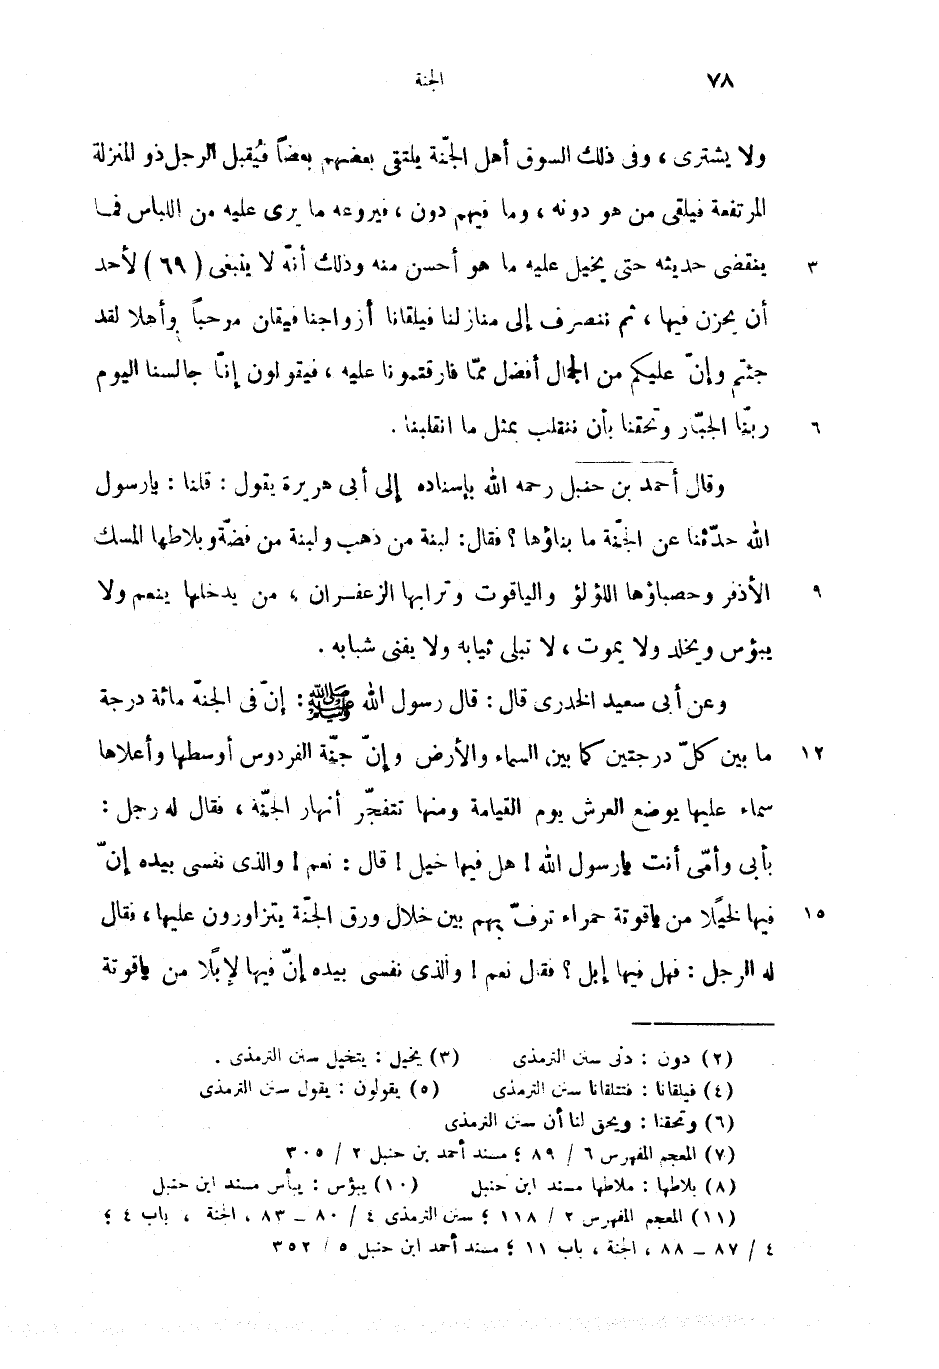 ٧٨ الجنة
ولا يشترى ، وفى ذلك السوق أهل الجنّة يلتقى بعضهم بعضاً فيُقبل الرجل ذو المنزلة
المرتفعة فيلقى من هو دونه ، وما فيهم دون ، فيروعه ما يرى عليه من اللباس فما
٣ ينقضى حديثه حتى يخيل عليه ما هو أحسن منه وذلك أنّه لا ينبغى ( ٦٩ ) لأحد
أن يحزن فيها ، ثم ننصرف إلى منازلنا فيلقانا أزواجنا فيقلن مرحباً وأهلا لقد
جئتم وإنّ عليكم من الجمال أفضل ممّا فارقتمونا عليه ، فيقولون إنّا جالسنا اليوم
٦ ربنّا الجبّار وتحقنا بأن ننقلب بمثل ما انقلبنا .
وقال أحمد بن حنبل رحمه الله بإسناده إلى أبى هريرة يقول : قلنا : يارسول
الله حدّثنا عن الجنّة ما بناؤها ؟ فقال: لبنة من ذهب ولبنة من فضّة وبلاطها المسك
٩ الأذفر وحصباؤها اللؤلؤ والياقوت وترابها الزعفران ، من يدخلها ينعم ولا
يبؤس ويخلد ولا يموت ، لا تبلى ثيابه ولا يفنى شبابه .
وعن أبى سعيد الخدرى قال : قال رسول الله ﷺ : إنّ فى الجنة مائة درجة
١٢ ما بين كلّ درجتين كما بين السماء والأرض وإنّ جنّة الفردوس أوسطها وأعلاها
سماء عليها يوضع العرش يوم القيامة ومنها تتفجّر أنهار الجنّة ، فقال له رجل :
بأبى وأمّى أنت يارسول الله ! هل فيها خيل ! قال : نعم ! والذى نفسى بيده إنّ
١٥ فيها لخيلًا من ياقوتة حمراء ترفّ بهم بين خلال ورق الجنّة يتزاورون عليها ، فقال
له الرجل : فهل فيها إبل ؟ فقال نعم ! والذى نفسى بيده إنّ فيها لإبلًا من ياقوتة
(٢) دون : دنى سنن الترمذى (٣) يخيل : يتخيل سنن الترمذى .
(٤) فيلقانا : فتتلقانا سنن الترمذى (٥) يقولون : يقول سنن الترمذى
(٦) وتحقنا : ويحق لنا أن سنن الترمذى
(٧) المعجم المفهرس ٦ / ٨٩ ؛ مسند أحمد بن حنبل ٢ / ٣٠٥
(٨) بلاطها : ملاطها مسند ابن حنبل (١٠) يبؤس : يبأس مسند ابن حنبل
(١١) المعجم المفهرس ٢ / ١١٨ ؛ سنن الترمذى ٤ / ٨٠ – ٨٣ ، الجنة ، باب ٤ ؛
٤ / ٨٧ – ٨٨ ، الجنة ، باب ١١ ؛ مسند أحمد ابن حنبل ٥ / ٣٥٢